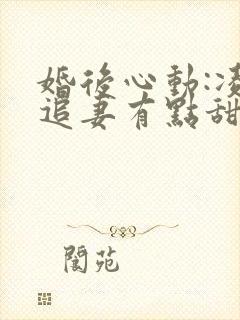 婚後心動:凌
追妻有點甜
閬苑